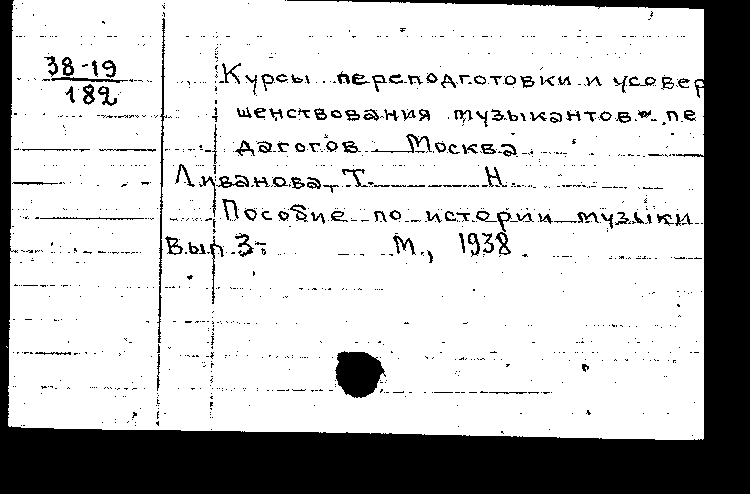 38-19
182
Курсы переподготовки и усовер
шенствования музыкантов-пе
дагогов Москва
Ливанова, Т. Н.
Пособие по истории музыки
Вып 3-
М., 1938.